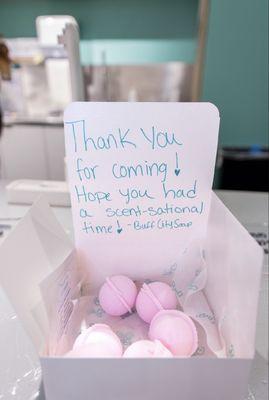 Thank you
for coming!
Hope you had
a scent-sational
time! - Buff City Soap